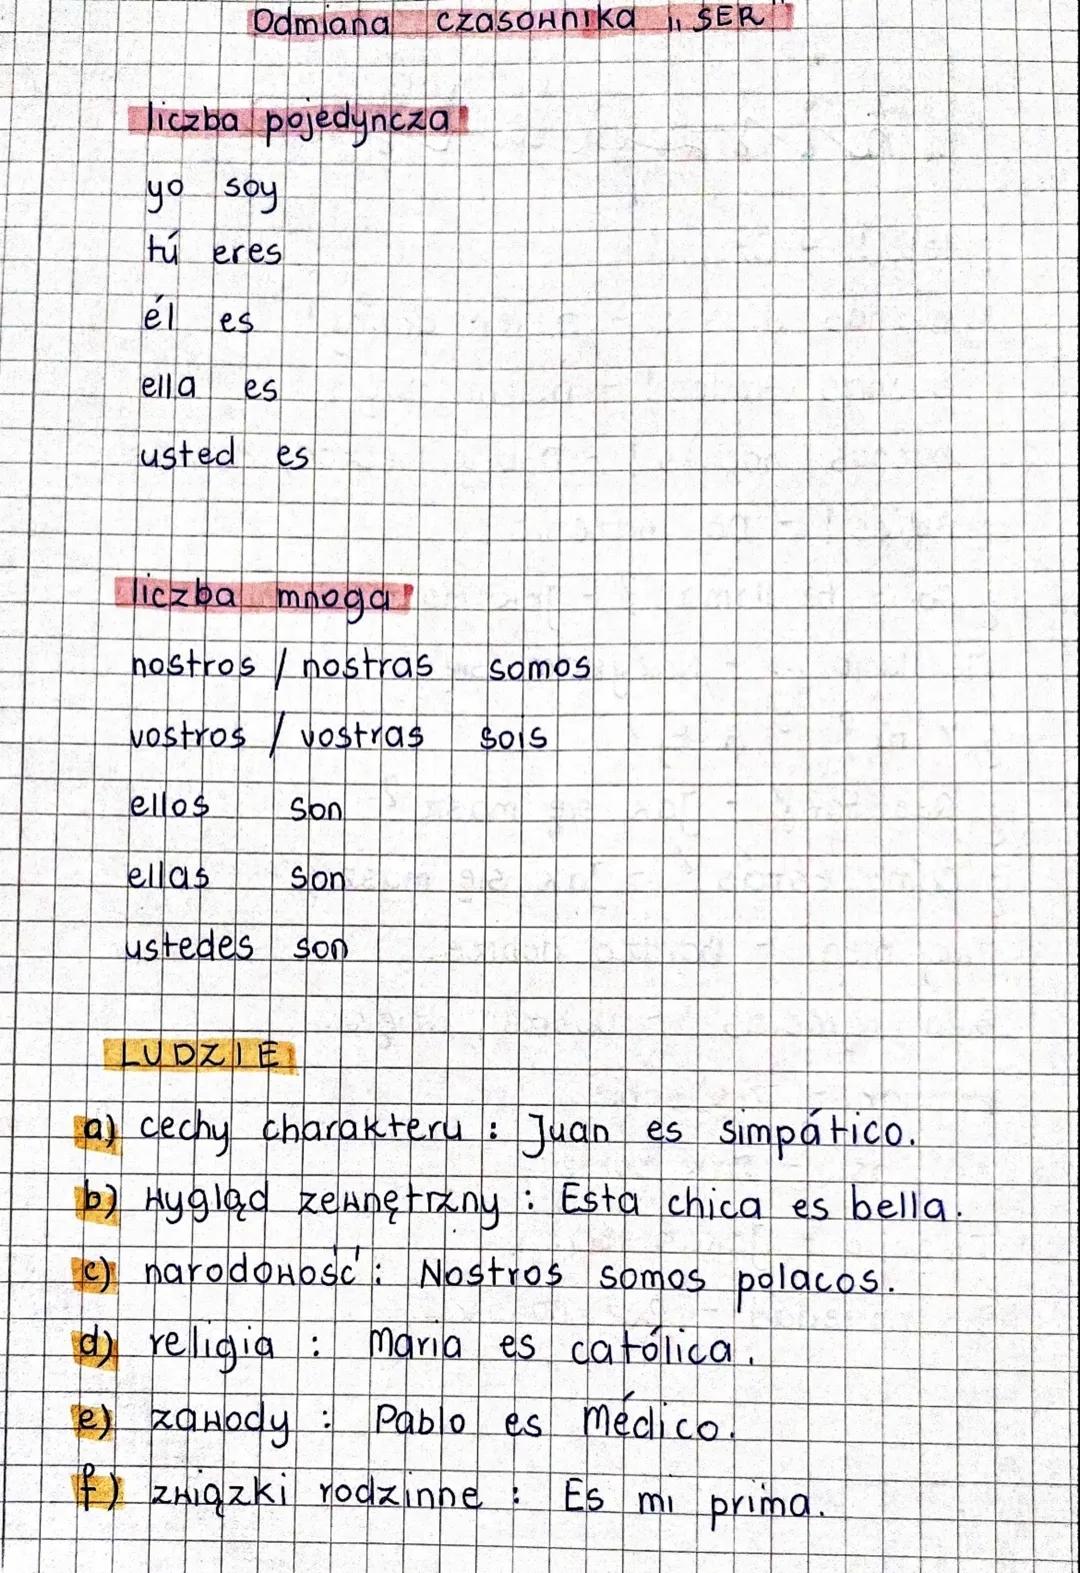 Odmiana czasownika „SER"
liczba pojedyncza
yo soy
tú eres
él es
ella es
usted es
liczba mnoga
nostros / nostras somos
vostros / vostras sois
ellos son
ellas son
ustedes son
LUDZIE
a) cechy charakteru : Juan es simpático.
b) wygląd zewnętrzny : Esta chica es bella.
c) narodowość : Nostros somos polacos.
d) religia : Maria es católica.
e) zawody : Pablo es médico.
f) związki rodzinne : Es mi prima.